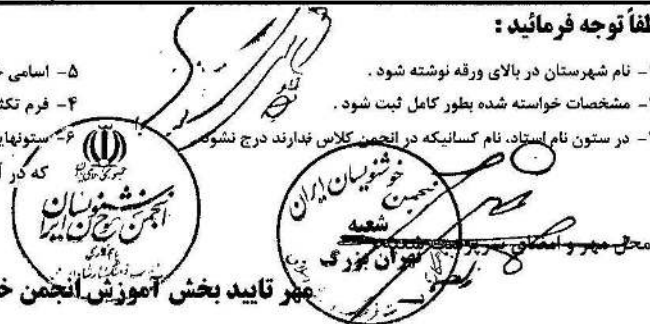 لطفاً توجه فرمائید :
۱- نام شهرستان در بالای ورقه نوشته شود .
۲- مشخصات خواسته شده بطور کامل ثبت شود .
۳- در ستون نام استاد، نام کسانیکه در انجمن کلاس ندارند درج نشود
۵- اسامی
۴- فرم
۶- ستونهای
که در
انجمن خوشنویسان ایران
انجمن خوشنویسان ایران
شعبه
تهران بزرگ
محل مهر و امضای سرپرست
مهر تایید بخش آموزش انجمن